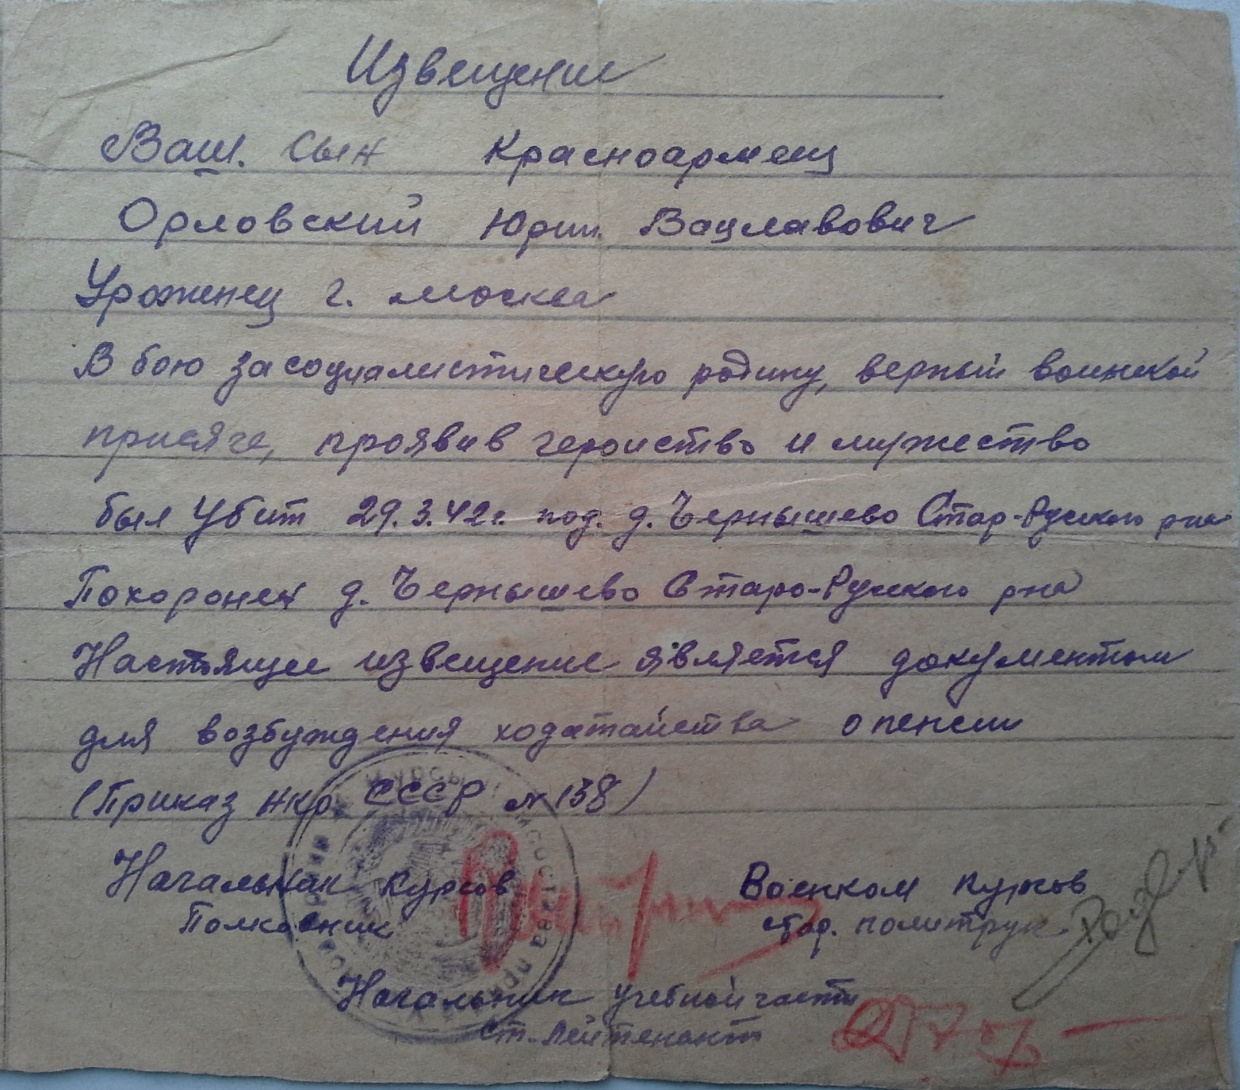 Извещение
Ваш. сын Красноармеец
Орловский Юрий Вацлавович
Уроженец г. Москва
В бою за социалистическую родину, верный воинской
присяге, проявив геройство и мужество
был убит 29.3.42г. под. д. Чернышево Стар-Русского рна
Похоронен д. Чернышево Старо-Русского рна
Настоящее извещение является документом
для возбуждения ходатайства о пенсии
(Приказ нко СССР № 138)
Начальник курсов Военком курсов
Полковник стар. политрук
Начальник учебной части
ст. лейтенант